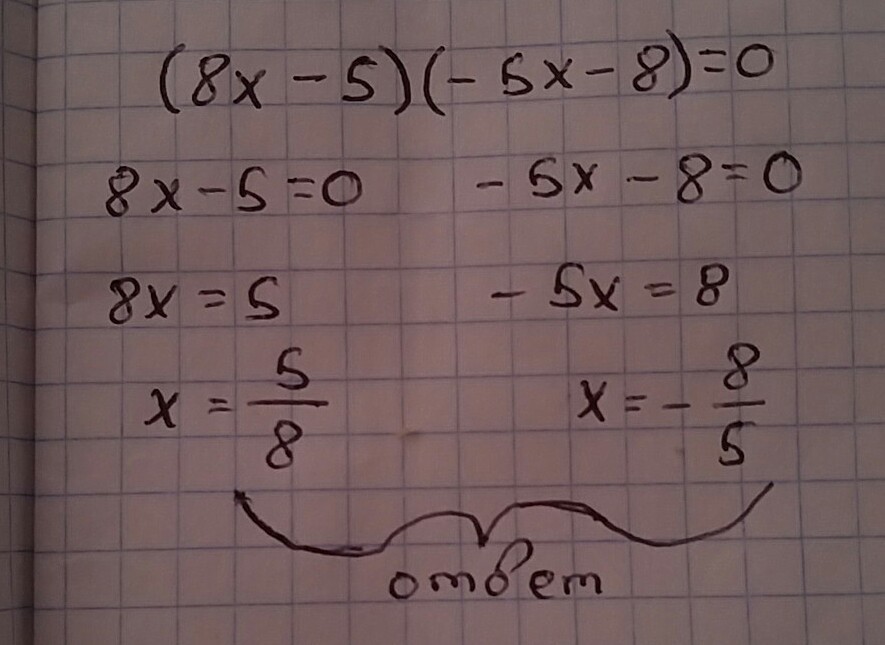 (8x - 5)(- 5x - 8) = 0
8x - 5 = 0    - 5x - 8 = 0
8x = 5    - 5x = 8
x = 5/8    x = - 8/5
ответ